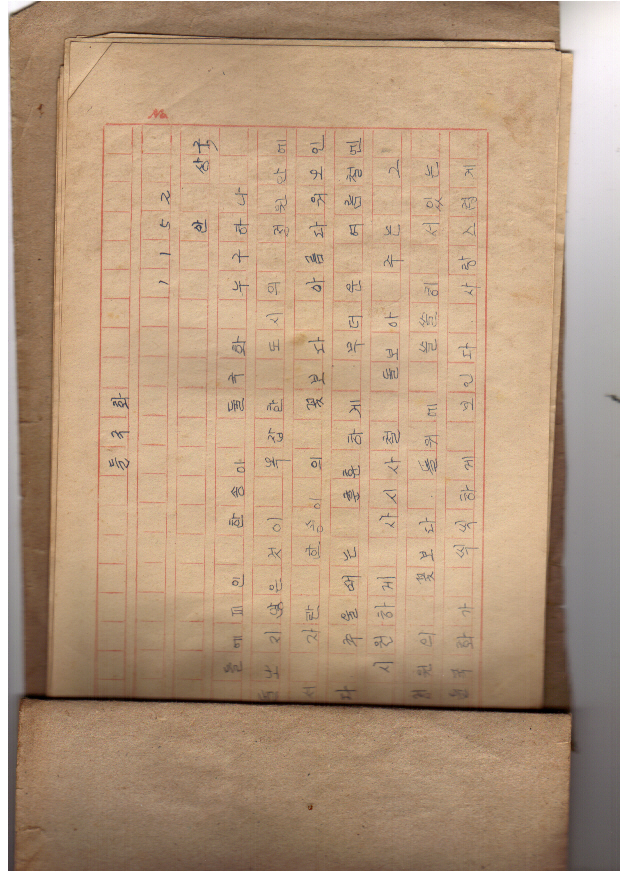 들국화
1152
안 상국
들에 피인 한송이 들국화 누구하나
돌보지않은것이 복잡한 도시의 정원안에
서 자란 한송이의 꽃보다 아름다워보인
다 추울때는 훈훈하게 무더운 여름철엔
시원하게 사시사철 돌보아 주는 그
정원의 꽃보다 들위에 쓸쓸히 서있는
들국화가 씩씩하게 보인다. 사랑스럽게